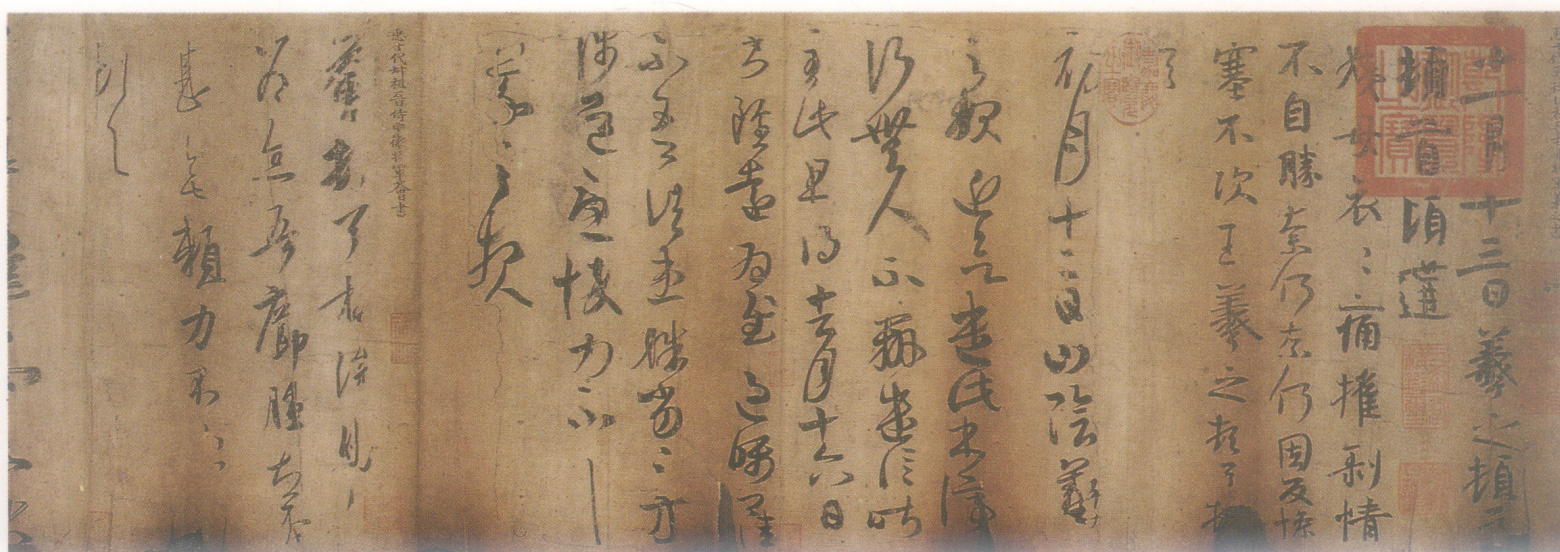 十一月十三日羲之頓首
頓首頃遘
姨母哀哀痛摧剝情
不自勝奈何奈何因反慘
塞不次王羲之頓首頓
首
初月十二日山陰羲
之報近欲遣此書停
行無人不辦遣信昨
至此且得去月十六日
書雖遠為慰過囑卿佳
不吾諸患殊劣殊劣方
涉道憂悴力不具
羲之報
十代叔祖晉侍中衛將軍薈書
薈
為念吾癤腫
甚無賴力不